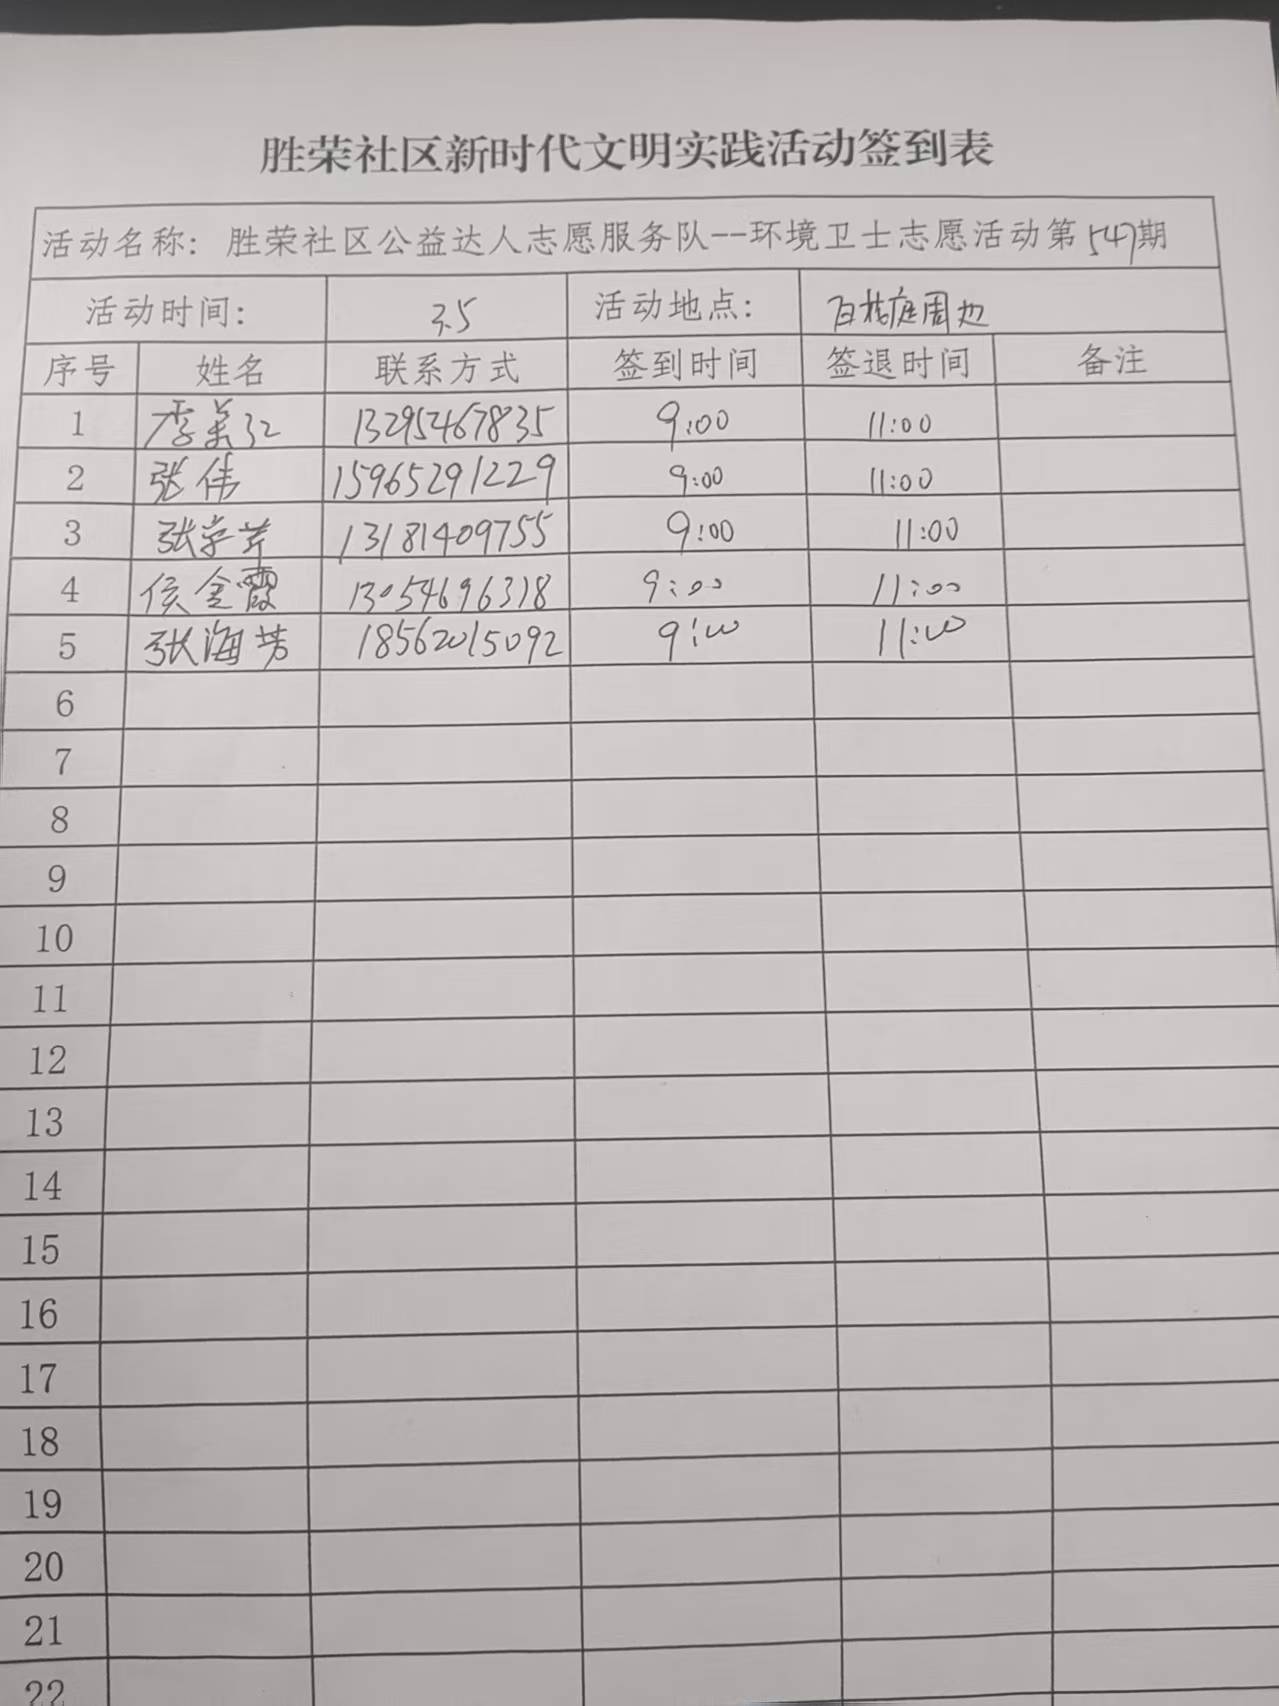 胜荣社区新时代文明实践活动签到表
活动名称: 胜荣社区公益达人志愿服务队--环境卫士志愿活动第547期
活动时间: 3.5 活动地点: 百桔庭周边
序号 姓名 联系方式 签到时间 签退时间 备注
1 李美江 13295467835 9:00 11:00
2 张伟 15965291229 9:00 11:00
3 张学芹 13181409755 9:00 11:00
4 侯金霞 13054696318 9:00 11:00
5 张海芳 18562015092 9:00 11:00
6
7
8
9
10
11
12
13
14
15
16
17
18
19
20
21
22